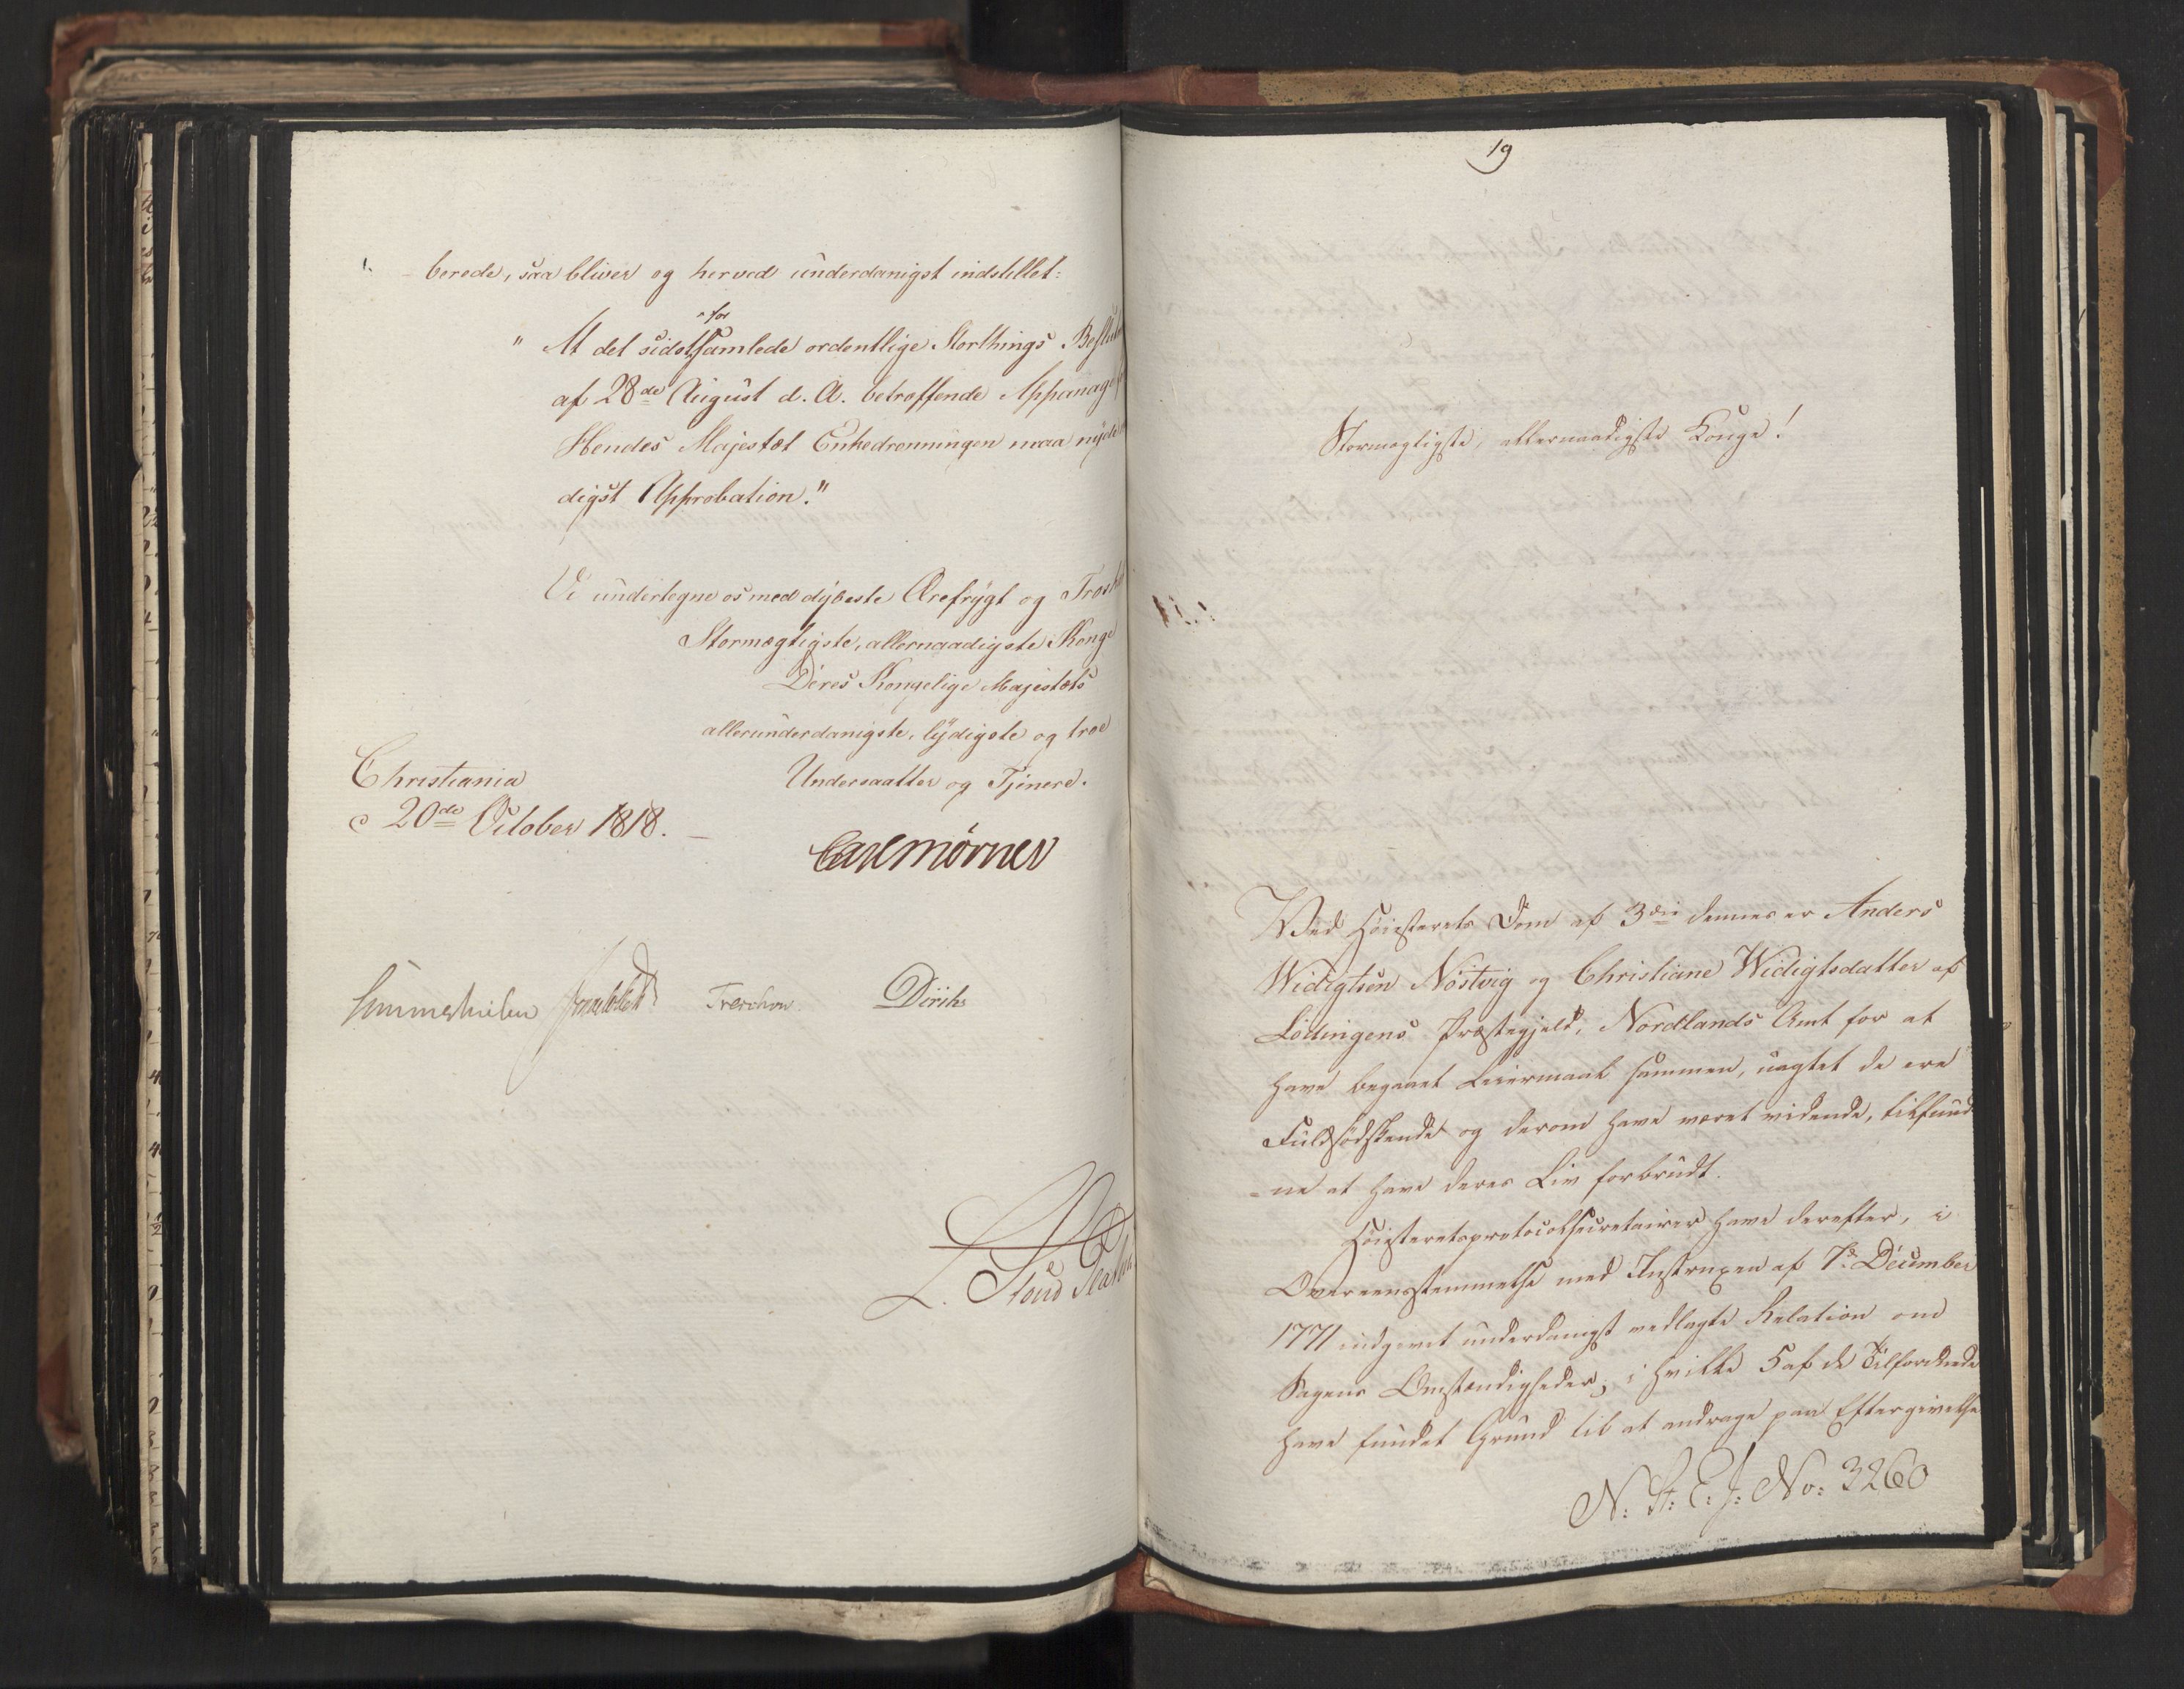 berede, saa bliver og herved underdanigst indstillet:
for
" At det sidst samlede ordentlige Storthings
af 28de August d. A. betræffende Appanage
Hendes Majestæt Enkedronningen maa
digst Approbation."
Vi undertegne os med dybeste Ærefrygt og
Stormægtigste, allernaadigste Konge
Deres Kongelige Majestæts
allerunderdanigste, lydigste og troe
Undersaatter og Tjenere.
Christiania
20de October 1818.
Carl Mørner
Sommerhielm Treschow Diriks
L. Stoud Platou
19
Stormægtigste, allernaadigste Konge!
Ved Høiesterets Dom af 3die dennes er Anders
Widigtsen Nöstvig og Christiane Widigtsdatter af
Lödingens Præstegjeld, Nordlands Amt for at
have begaaet Leiermaal sammen, uagtet de ere
Fuldsödskende og derom have været vidende, tilfund-
-ne at have deres Liv forbrudt.
Höiesteretsprotocolsecretairer have derefter, i
Overeensstemmelse med Instruxen af 7de December
1771 indgivet underdanigst vedlagte Relation om
Sagens Omstændigheder, i hvilke 5 af de Tilforordnede
have fundet Grund til at andrage paa Eftergivelse
N: St: E: J: No: 3260